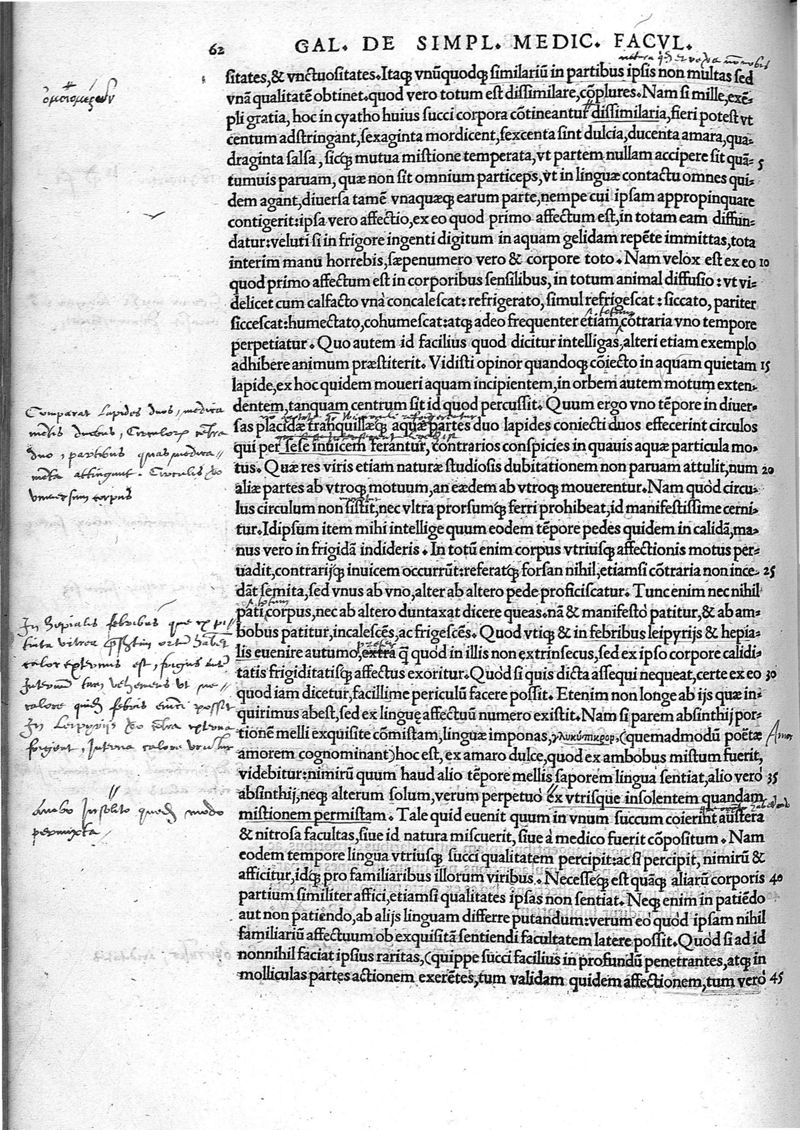 62 GAL. DE SIMPL. MEDIC. FACVL.
ὁμοιομερῶν
sitates,& vnctuositates.Itaqȝ vnũquodqȝ similariũ in partibus ipsis non multas sed
vnã qualitatẽ obtinet.quod vero totum est dissimilare,cõplures.Nam si mille,exẽ-
pli gratia, hoc in cyatho huius succi corpora cõtineantur dissimilaria,fieri potest vt
centum adstringant,sexaginta mordicent,sexcenta sint dulcia,ducenta amara,qua-
draginta salsa, sicqȝ mutua mistione temperata,vt partem nullam accipere sit quã- 5
tumuis paruam, quæ non sit omnium particeps,vt in linguæ contactu omnes qui-
dem agant,diuersa tamẽ vnaquæqȝ earum parte,nempe cui ipsam appropinquare
contigerit:ipsa vero affectio,ex eo quod primo affectum est,in totam eam diffun-
datur:veluti si in frigore ingenti digitum in aquam gelidam repẽte immittas,tota
interim manu horrebis,sæpenumero vero & corpore toto. Nam velox est ex eo 10
quod primo affectum est in corporibus sensilibus, in totum animal diffusio: vt vi-
delicet cum calfacto vna concalescat: refrigerato, simul refrigescat: siccato, pariter
siccescat:humectato,cohumescat:atqȝ adeo frequenter etiam cõtraria vno tempore
perpetiatur. Quo autem id facilius quod dicitur intelligas,alteri etiam exemplo
adhibere animum præstiterit. Vidisti opinor quandoqȝ cõiecto in aquam quietam 15
lapide,ex hoc quidem moueri aquam incipientem,in orbem autem motum exten-
dentem,tanquam centrum sit id quod percussit. Quum ergo vno tẽpore in diuer-
sas placidæ tranquillæqȝ aquæ partes duo lapides coniecti duos effecerint circulos
qui per sese inuicem ferantur, contrarios conspicies in quauis aquæ particula mo-
tus. Quæ res viris etiam naturæ studiosis dubitationem non paruam attulit,num 20
aliæ partes ab vtroqȝ motuum,an eædem ab vtroqȝ mouerentur. Nam quòd circu-
lus circulum non sistit,nec vltra prorsumqȝ ferri prohibeat,id manifestissime cerni-
tur.Idipsum item mihi intellige quum eodem tẽpore pedes quidem in calidã,ma-
nus vero in frigidã indideris. In totũ enim corpus vtriusqȝ affectionis motus per-
uadit,contrarijqȝ inuicem occurrũt:referatqȝ forsan nihil,etiamsi cõtraria non ince- 25
dãt semita,sed vnus ab vno,alter ab altero pede proficiscatur. Tunc enim nec nihil
pati corpus,nec ab altero duntaxat dicere queas.nã & manifestò patitur,& ab am-
bobus patitur,incalescẽs,ac frigescẽs. Quod vtiqȝ & in febribus leipyrijs & hepia-
lis euenire autumo,extra q̃ quòd in illis non extrinsecus,sed ex ipso corpore calidi-
tatis frigiditatisqȝ affectus exoritur. Quòd si quis dicta assequi nequeat,certe ex eo 30
quod iam dicetur,facillime periculũ facere possit. Etenim non longe ab ijs quæ in-
quirimus abest,sed ex linguę affectuũ numero existit. Nam si parem absinthij por-
tionẽ melli exquisite cõmistam,linguæ imponas,γλυκύπικρον,(quemadmodũ poëtæ
amorem cognominant)hoc est, ex amaro dulce,quod ex ambobus mistum fuerit,
videbitur:nimirũ quum haud alio tẽpore mellis saporem lingua sentiat,alio vero 35
absinthij,neqȝ alterum solum,verum perpetuò ex vtrisque insolentem quandam
mistionem permistam. Tale quid euenit quum in vnum succum coierint austera
& nitrosa facultas,siue id natura miscuerit, siue a medico fuerit cõpositum. Nam
eodem tempore lingua vtriusqȝ succi qualitatem percipit:ac si percipit, nimirũ &
afficitur,idqȝ pro familiaribus illorum viribus. Necesseqȝ est quãqȝ aliarũ corporis 40
partium similiter affici,etiamsi qualitates ipsas non sentiat. Neqȝ enim in patiẽdo
aut non patiendo,ab alijs linguam differre putandum:verum eo quòd ipsam nihil
familiariũ affectuum ob exquisitã sentiendi facultatem latere possit. Quòd si ad id
nonnihil faciat ipsius raritas,(quippe succi facilius in profundũ penetrantes,atqȝ in
molliculas partes actionem exerẽtes,tum validam quidem affectionem,tum verò 45
Comparat Lapides duos, medica
mẽtis duobus, Circulorũ
duo, partibus quas medica-
mẽta attingunt. Circulis
vniuersum corpus
In
calor externus est, frigus
In Leipyrijs
Ambo Insolito quodã modo
permixta